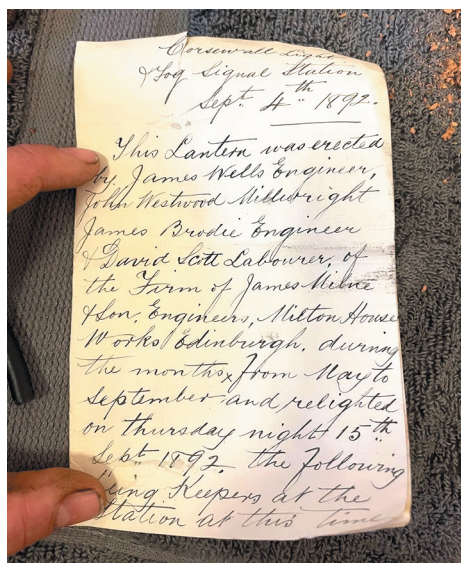 Corsewall Light
& Fog Signal Station
Sept. 4th 1892.
This Lantern was erected
by James Wells Engineer,
John Westwood Millwright
James Brodie Engineer
& David Scott Labourer, of
the Firm of James Milne
& Son. Engineers, Milton House
Works Edinburgh. during
the months from May to
September and relighted
on Thursday night 15th
Sept 1892. the following
being Keepers at the
Station at this time